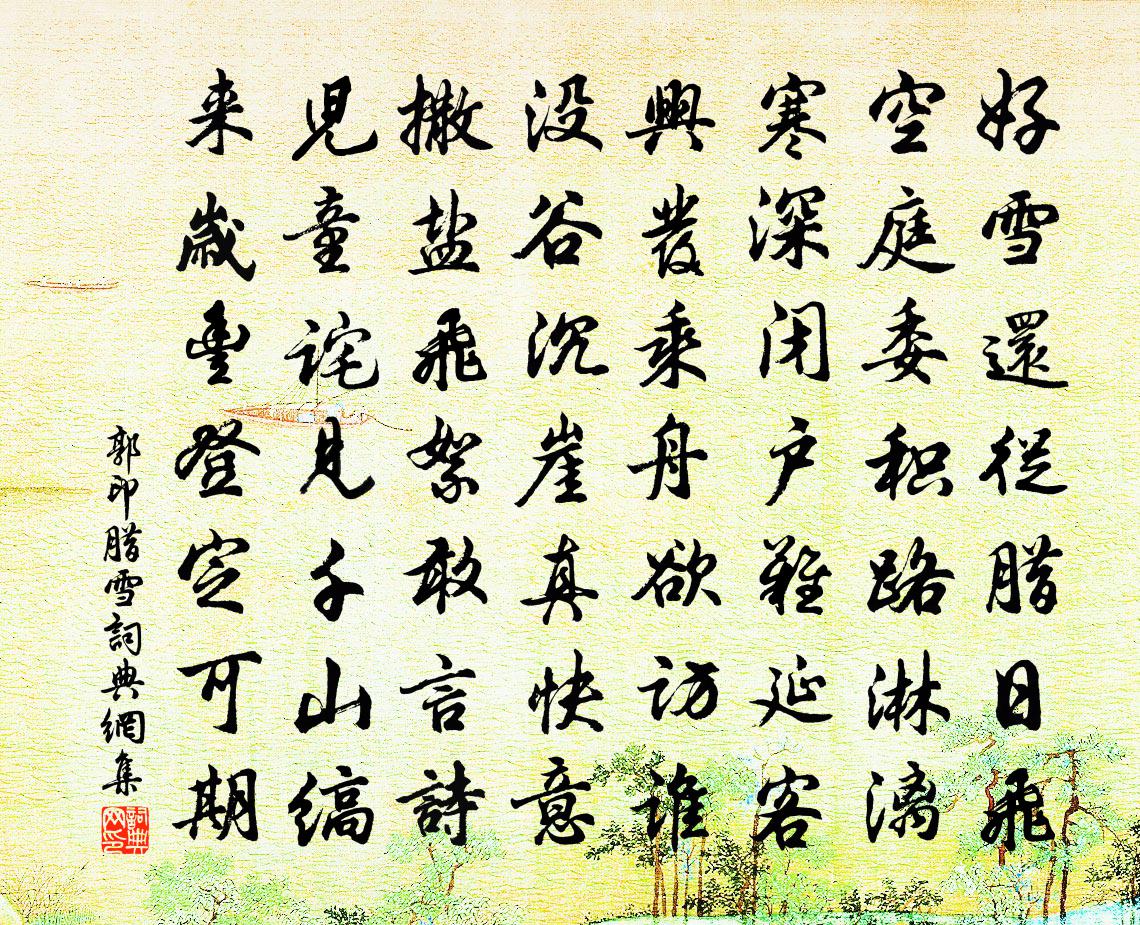 好雪還從腊日飛
空庭委积路淋漓
寒深闭户難延客
興發乘舟欲访誰
没谷沉崖真快意
撒盐飛絮敢言詩
児童詫見千山縞
来歳豊登定可期
郭印腊雪詞典網集
詞典网印